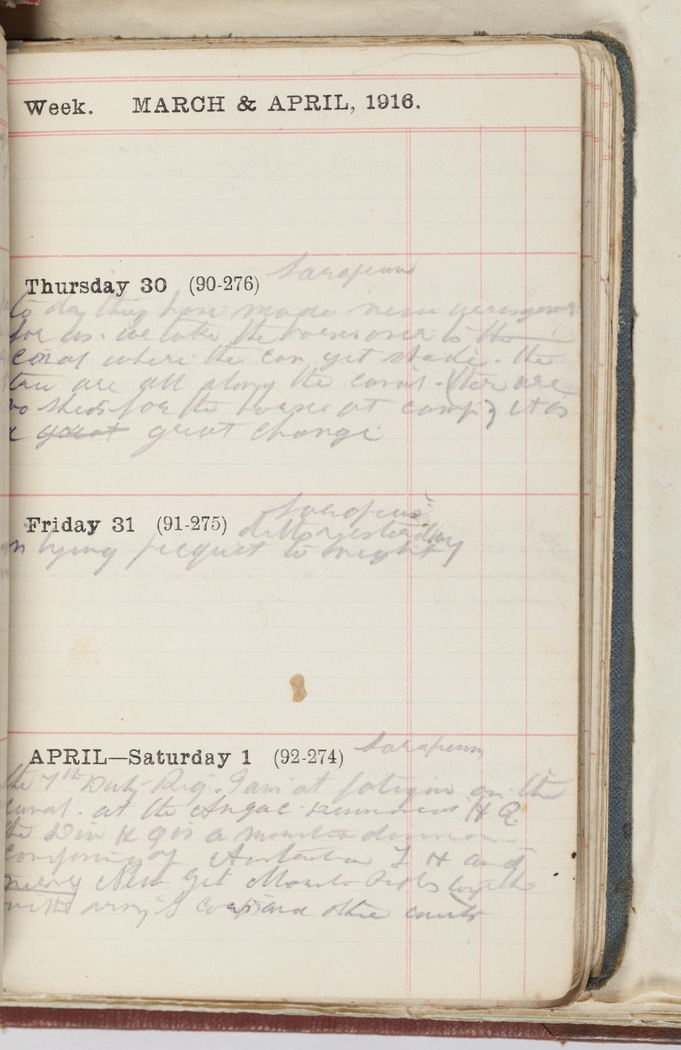 Week. MARCH & APRIL, 1916.
Thursday 30 (90-276) Sarapeum
to day they have made new
for us. we take the horses over to the
canal where the can get shade. the
tree are all along the canal. (ther are
no sheds for the horses at camp) it is
a great great change
Friday 31 (91-275) Sarapeum
ditto yesterday
n lying picquet to night
APRIL—Saturday 1 (92-274) Sarapeum
the 7th Duty Reg. I am at fatigue on the
canal. at the Anzac H Q
the Div H Q is a mounted division
of Australian L H and
New Mounted together
with and other units